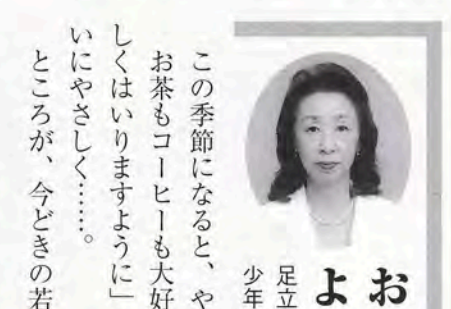 お
よ
足立
少年
この季節になると、や
お茶もコーヒーも大好
しくはいりますように」
いにやさしく……。
ところが、今どきの若